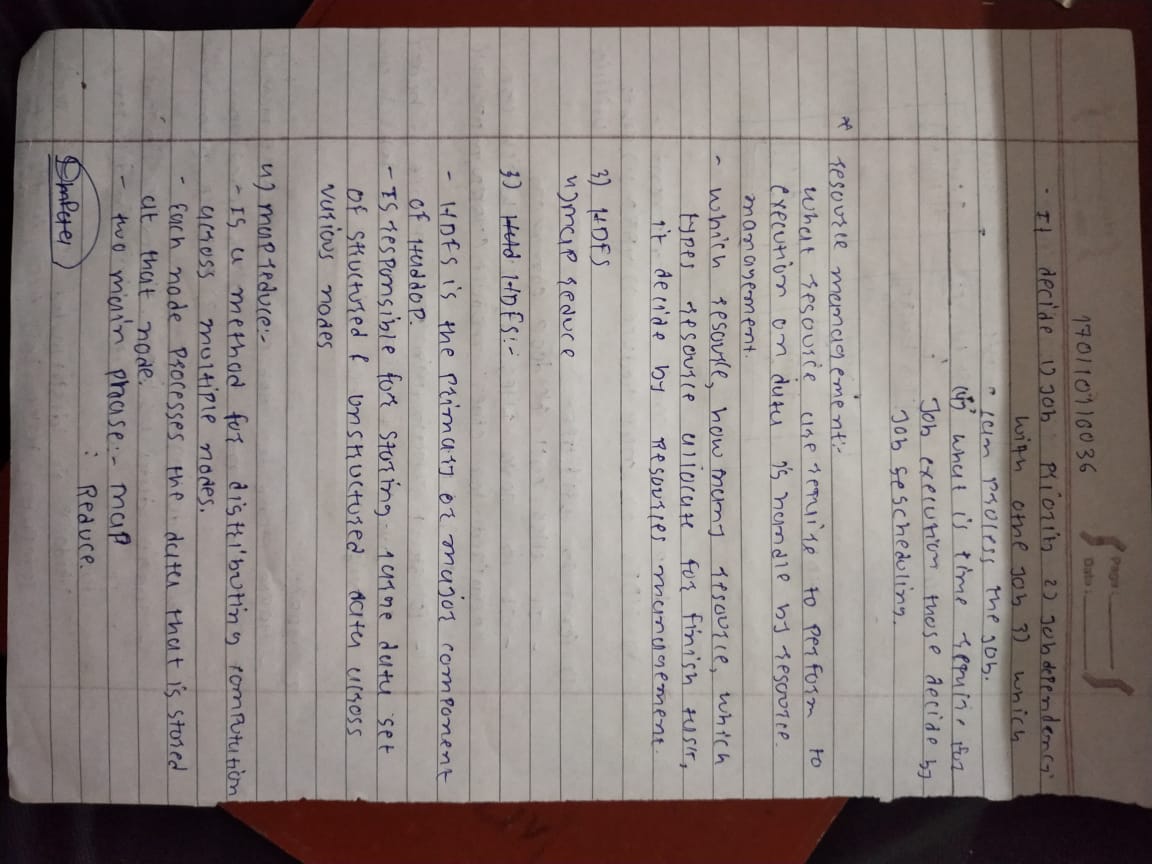 Page:
Date:
170110710036
- It decide 1) Job priorin 2) Job dependency
with othe job 3) which
can process the job.
4) what is time require for
Job execution those decide by
Job sescheduling.
* resource management:-
what resource are require to perform to
execution on data is handle by resource.
management.
- which resource, how many resource, which
types resource allocate for finish task,
it decide by resources management.
3) HDFS
4) map reduce
3) HDFS:-
- HDFS is the primary or major component
of Haddop.
- Is responsible for storing large data set
of structured & unstructured data across
various nodes
4) map reduce:-
- Is a method for distributing computation
across multiple nodes.
- Each node processes the data that is stored
at that node.
- two main phase:- map
: Reduce.